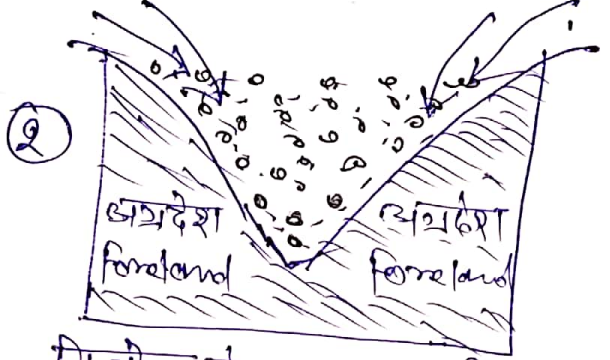 २
अग्रदेश
Foreland
अग्रदेश
Foreland